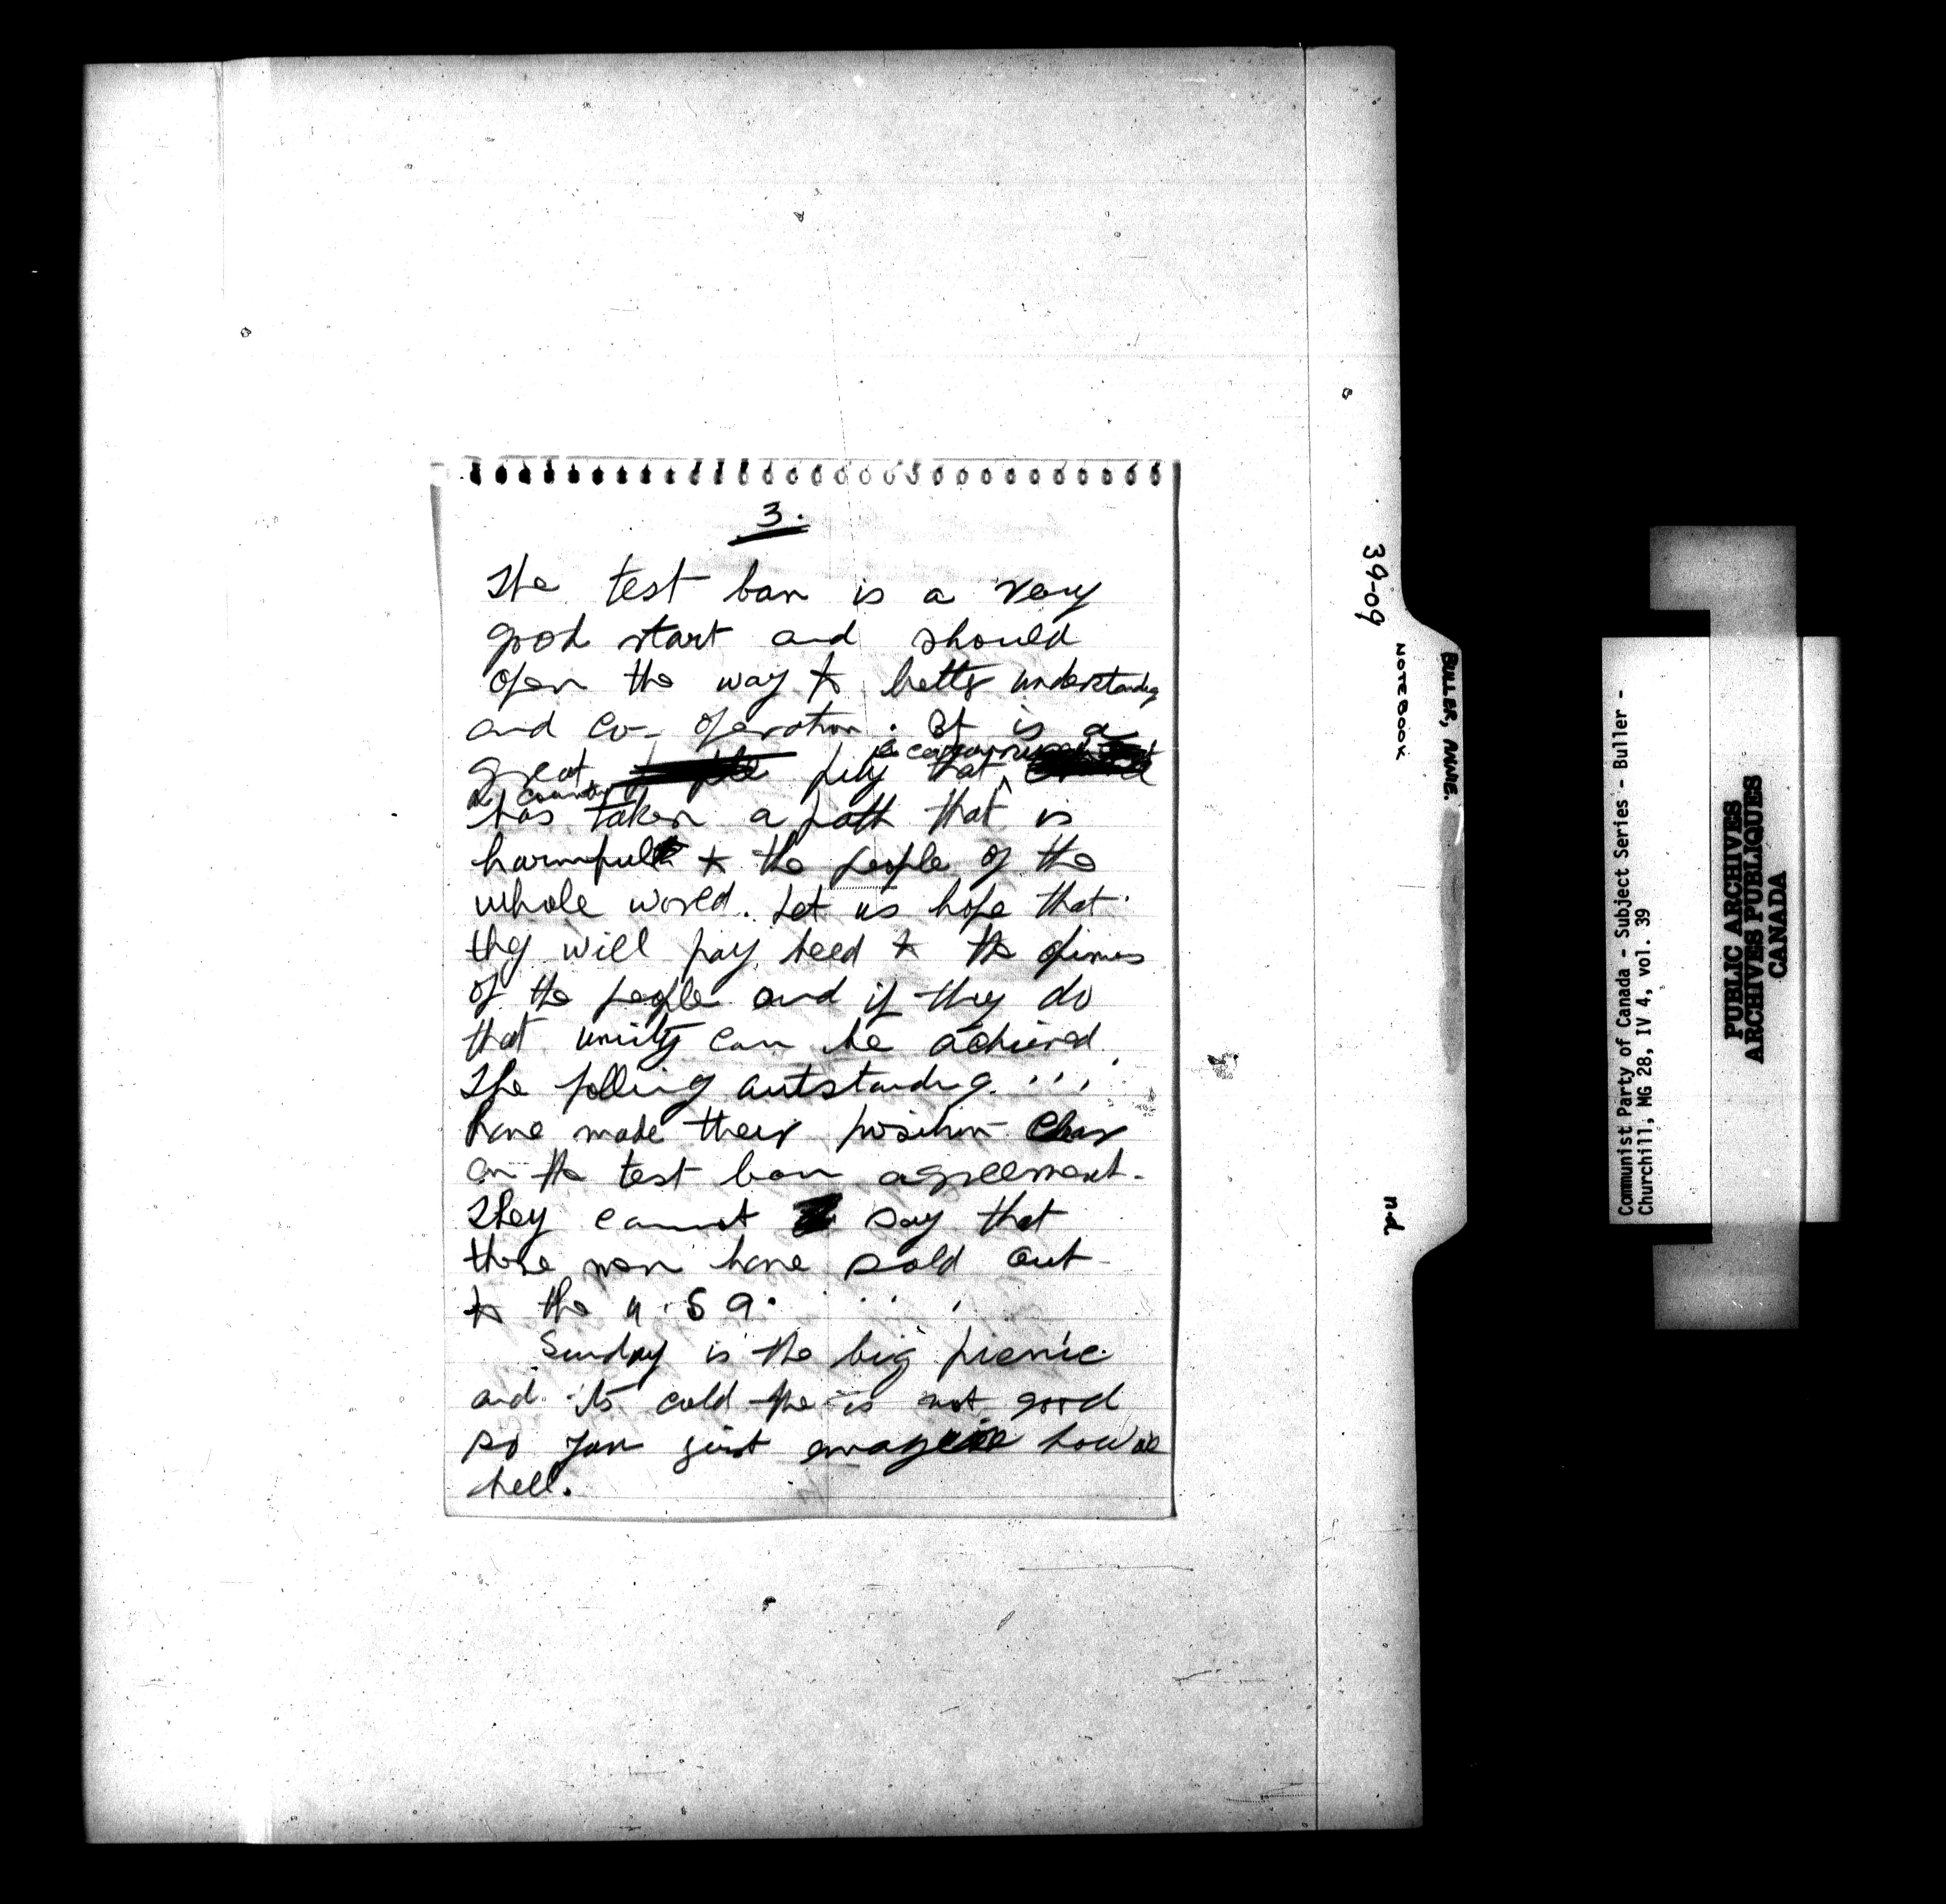 3.
The test ban is a very
good start and should
open the way to better understanding
and co-operation. It is a
great pity that
a country
has taken a path that is
harmful to the people of the
whole world. Let us hope that
they will pay heed to the
of the people and if they do
that unity can be achieved.
The folling outstanding . . .
have made their position clear
on the test ban agreement.
They cannot say that
those men have sold out
to the U.S.A.
Sunday is the big picnic
and its cold the is not good
so you just how we
hell.
39-09
NOTEBOOK
BULLER, ANNIE.
n.d
Communist Party of Canada - Subject Series - Buller -
Churchill, MG 28, IV 4, vol. 39
PUBLIC ARCHIVES
ARCHIVES PUBLIQUES
CANADA